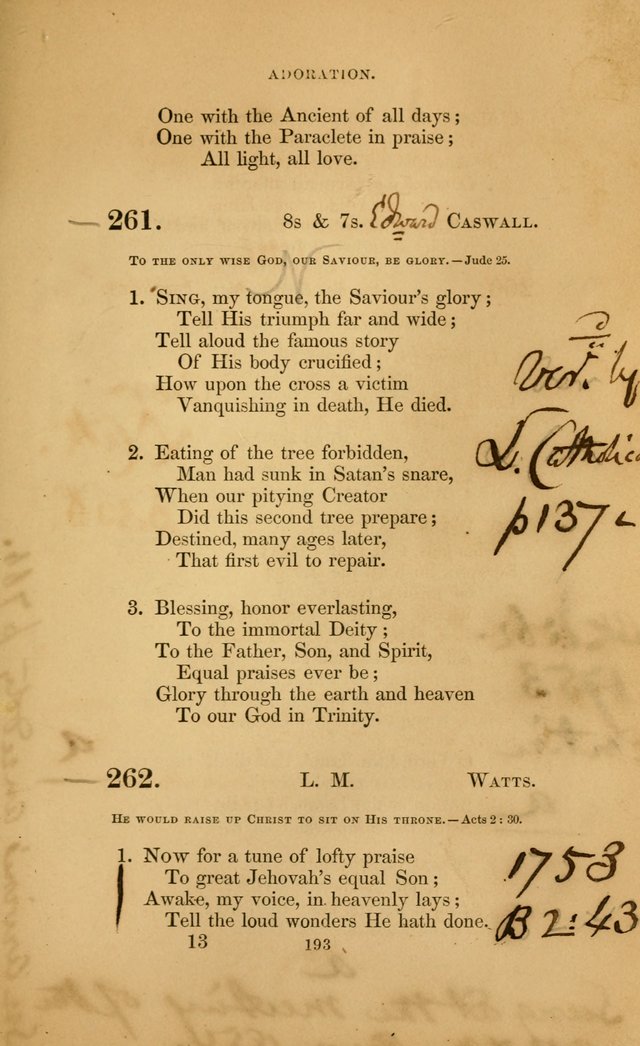 ADORATION.
One with the Ancient of all days;
One with the Paraclete in praise;
All light, all love.
261. 8s & 7s. Edward CASWALL.
TO THE ONLY WISE GOD, OUR SAVIOUR, BE GLORY.—Jude 25.
1. SING, my tongue, the Saviour's glory;
Tell His triumph far and wide;
Tell aloud the famous story
Of His body crucified;
How upon the cross a victim
Vanquishing in death, He died.
Ver. by
L. Catholica
p137
2. Eating of the tree forbidden,
Man had sunk in Satan's snare,
When our pitying Creator
Did this second tree prepare;
Destined, many ages later,
That first evil to repair.
3. Blessing, honor everlasting,
To the immortal Deity;
To the Father, Son, and Spirit,
Equal praises ever be;
Glory through the earth and heaven
To our God in Trinity.
262. L. M. WATTS.
HE WOULD RAISE UP CHRIST TO SIT ON HIS THRONE.—Acts 2:30.
1. NOW for a tune of lofty praise
To great Jehovah's equal Son;
Awake, my voice, in heavenly lays;
Tell the loud wonders He hath done.
1753
B 2:43
13 193